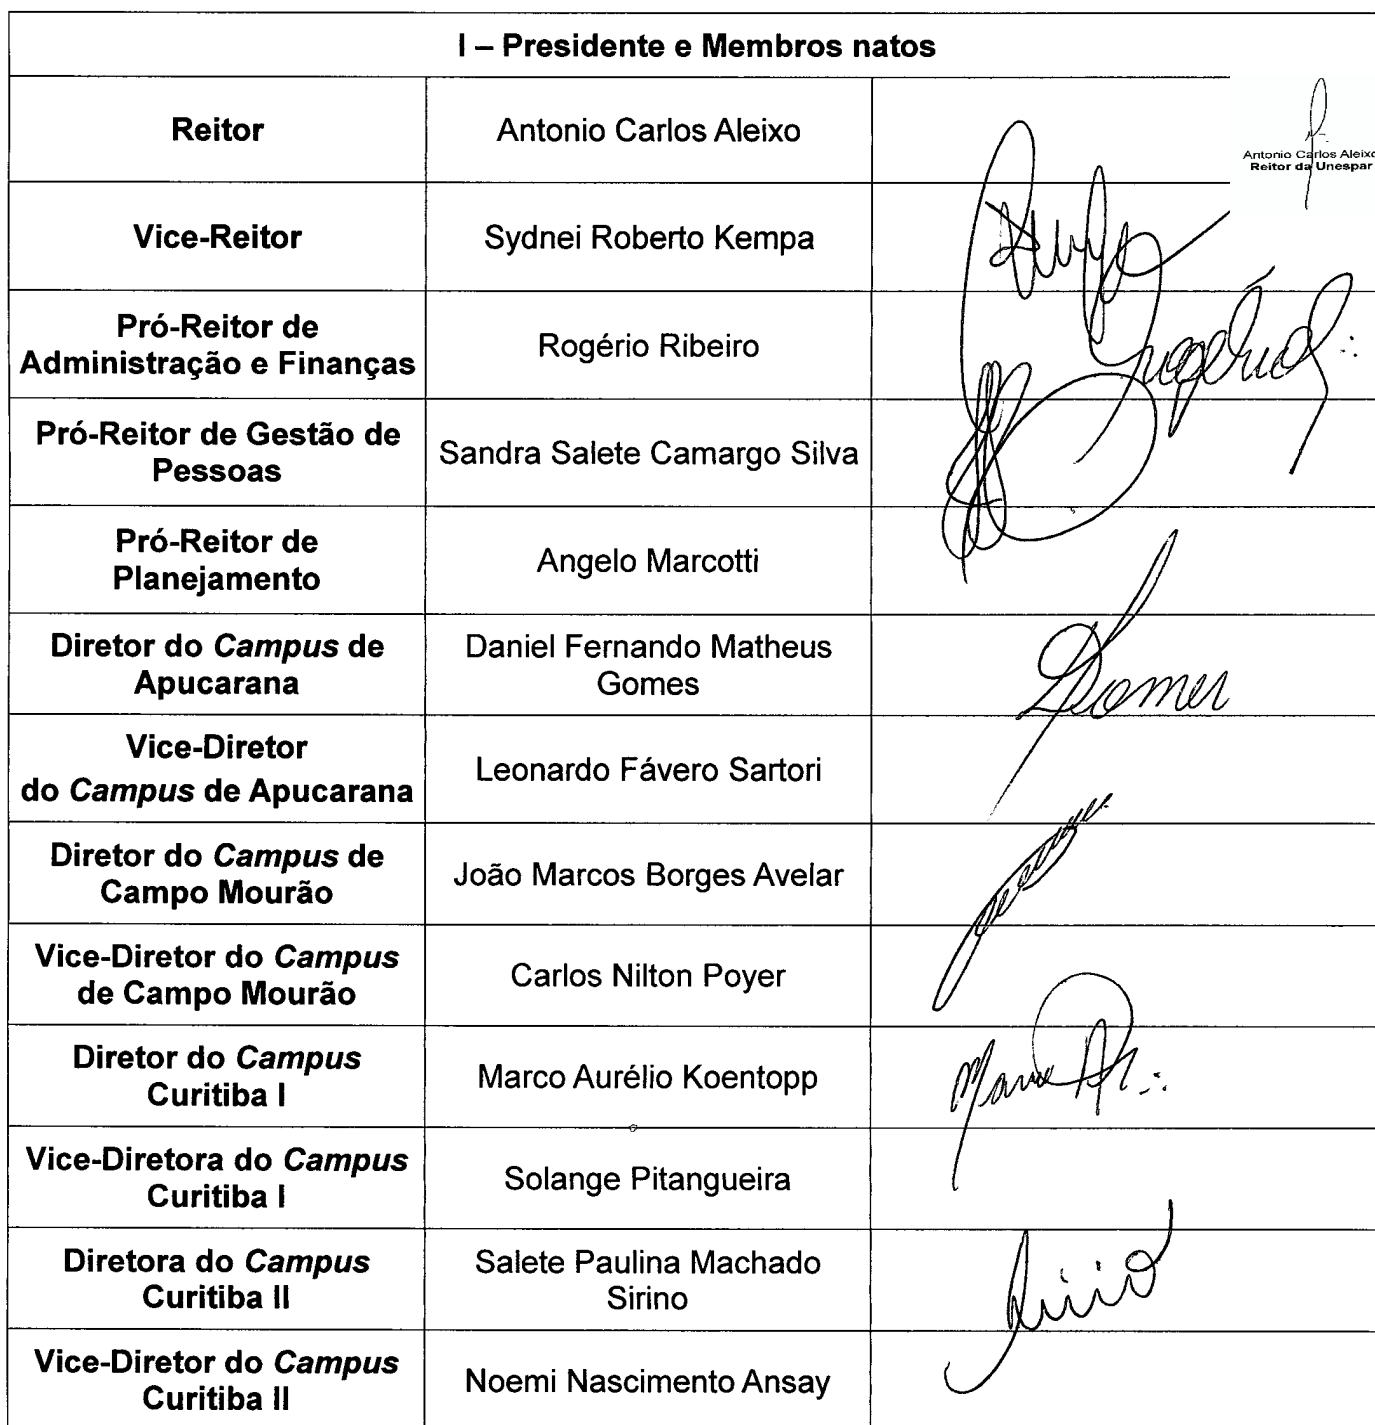 I – Presidente e Membros natos
Reitor
Antonio Carlos Aleixo
Antonio Carlos Aleixo
Reitor da Unespar
Vice-Reitor
Sydnei Roberto Kempa
Pró-Reitor de
Administração e Finanças
Rogério Ribeiro
Pró-Reitor de Gestão de
Pessoas
Sandra Salete Camargo Silva
Pró-Reitor de
Planejamento
Angelo Marcotti
Diretor do Campus de
Apucarana
Daniel Fernando Matheus
Gomes
Vice-Diretor
do Campus de Apucarana
Leonardo Fávero Sartori
Diretor do Campus de
Campo Mourão
João Marcos Borges Avelar
Vice-Diretor do Campus
de Campo Mourão
Carlos Nilton Poyer
Diretor do Campus
Curitiba I
Marco Aurélio Koentopp
Vice-Diretora do Campus
Curitiba I
Solange Pitangueira
Diretora do Campus
Curitiba II
Salete Paulina Machado
Sirino
Vice-Diretor do Campus
Curitiba II
Noemi Nascimento Ansay